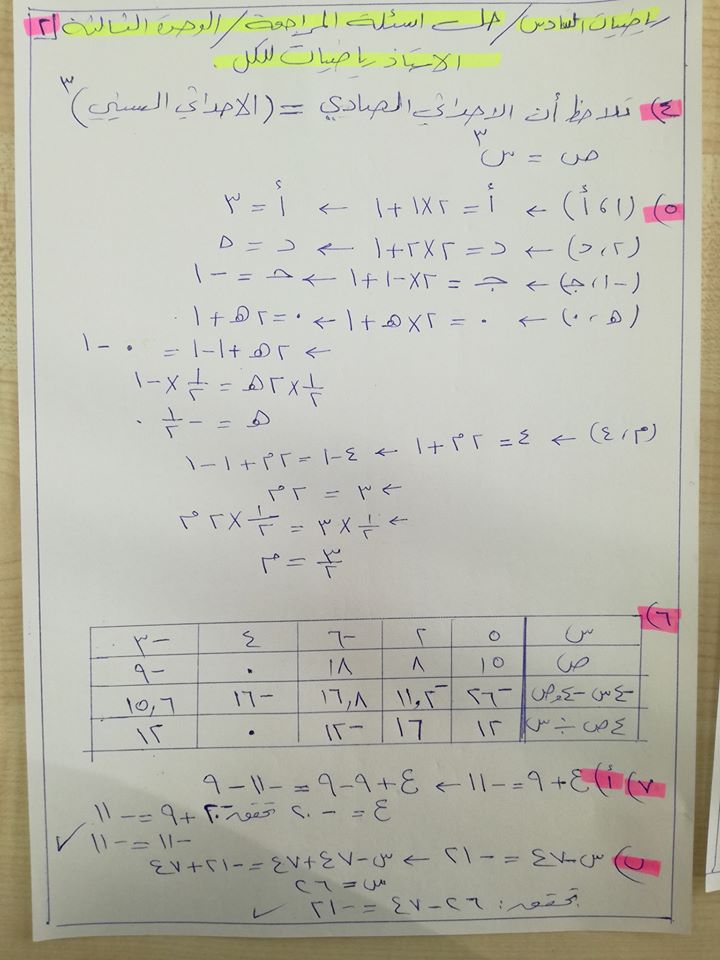 رياضيات السادس / حل اسئلة المراجعة / الوحدة الثالثة [٢]
الاستاذ رياضيات للكل.
٤) نلاحظ أن الاحداثي الصادي = (الاحداثي السيني)^٣
ص = س^٣
٥) (١، أ) ← أ = ٢×١+١ ← أ = ٣
(٢، د) ← د = ٢×٢+١ ← د = ٥
(-١، جـ) ← جـ = ٢×-١+١ ← جـ = -١
(هـ، ٠) ← ٠ = ٢×هـ+١ ← ٠ = ٢هـ+١
← ٢هـ+١-١ = ٠-١
١/٢×٢هـ = ١/٢×-١
هـ = -١/٢.
(م، ٤) ← ٤ = ٢م+١ ← ٤-١ = ٢م+١-١
← ٣ = ٢م
← ١/٢×٣ = ١/٢×٢م
٣/٢ = م
٦)
س ٥ ٢ -٦ ٤ -٣
ص ١٥ ٨ ١٨ ٠ -٩
-٤س-٤،ص -٢٦ -١١,٢ ١٦,٨ -١٦ ١٥,٦
٤ص ÷ س ١٢ ١٦ -١٢ ٠ ١٢
٧) أ) ع+٩ = -١١ ← ع+٩-٩ = -١١-٩
ع = -٢٠ تحقق: -٢٠+٩ = -١١
-١١ = -١١ ✓
ب) س-٧٤ = -١٢ ← س-٧٤+٧٤ = -١٢+٧٤
س = ٦٢
تحقق: ٦٢-٧٤ = -١٢ ✓